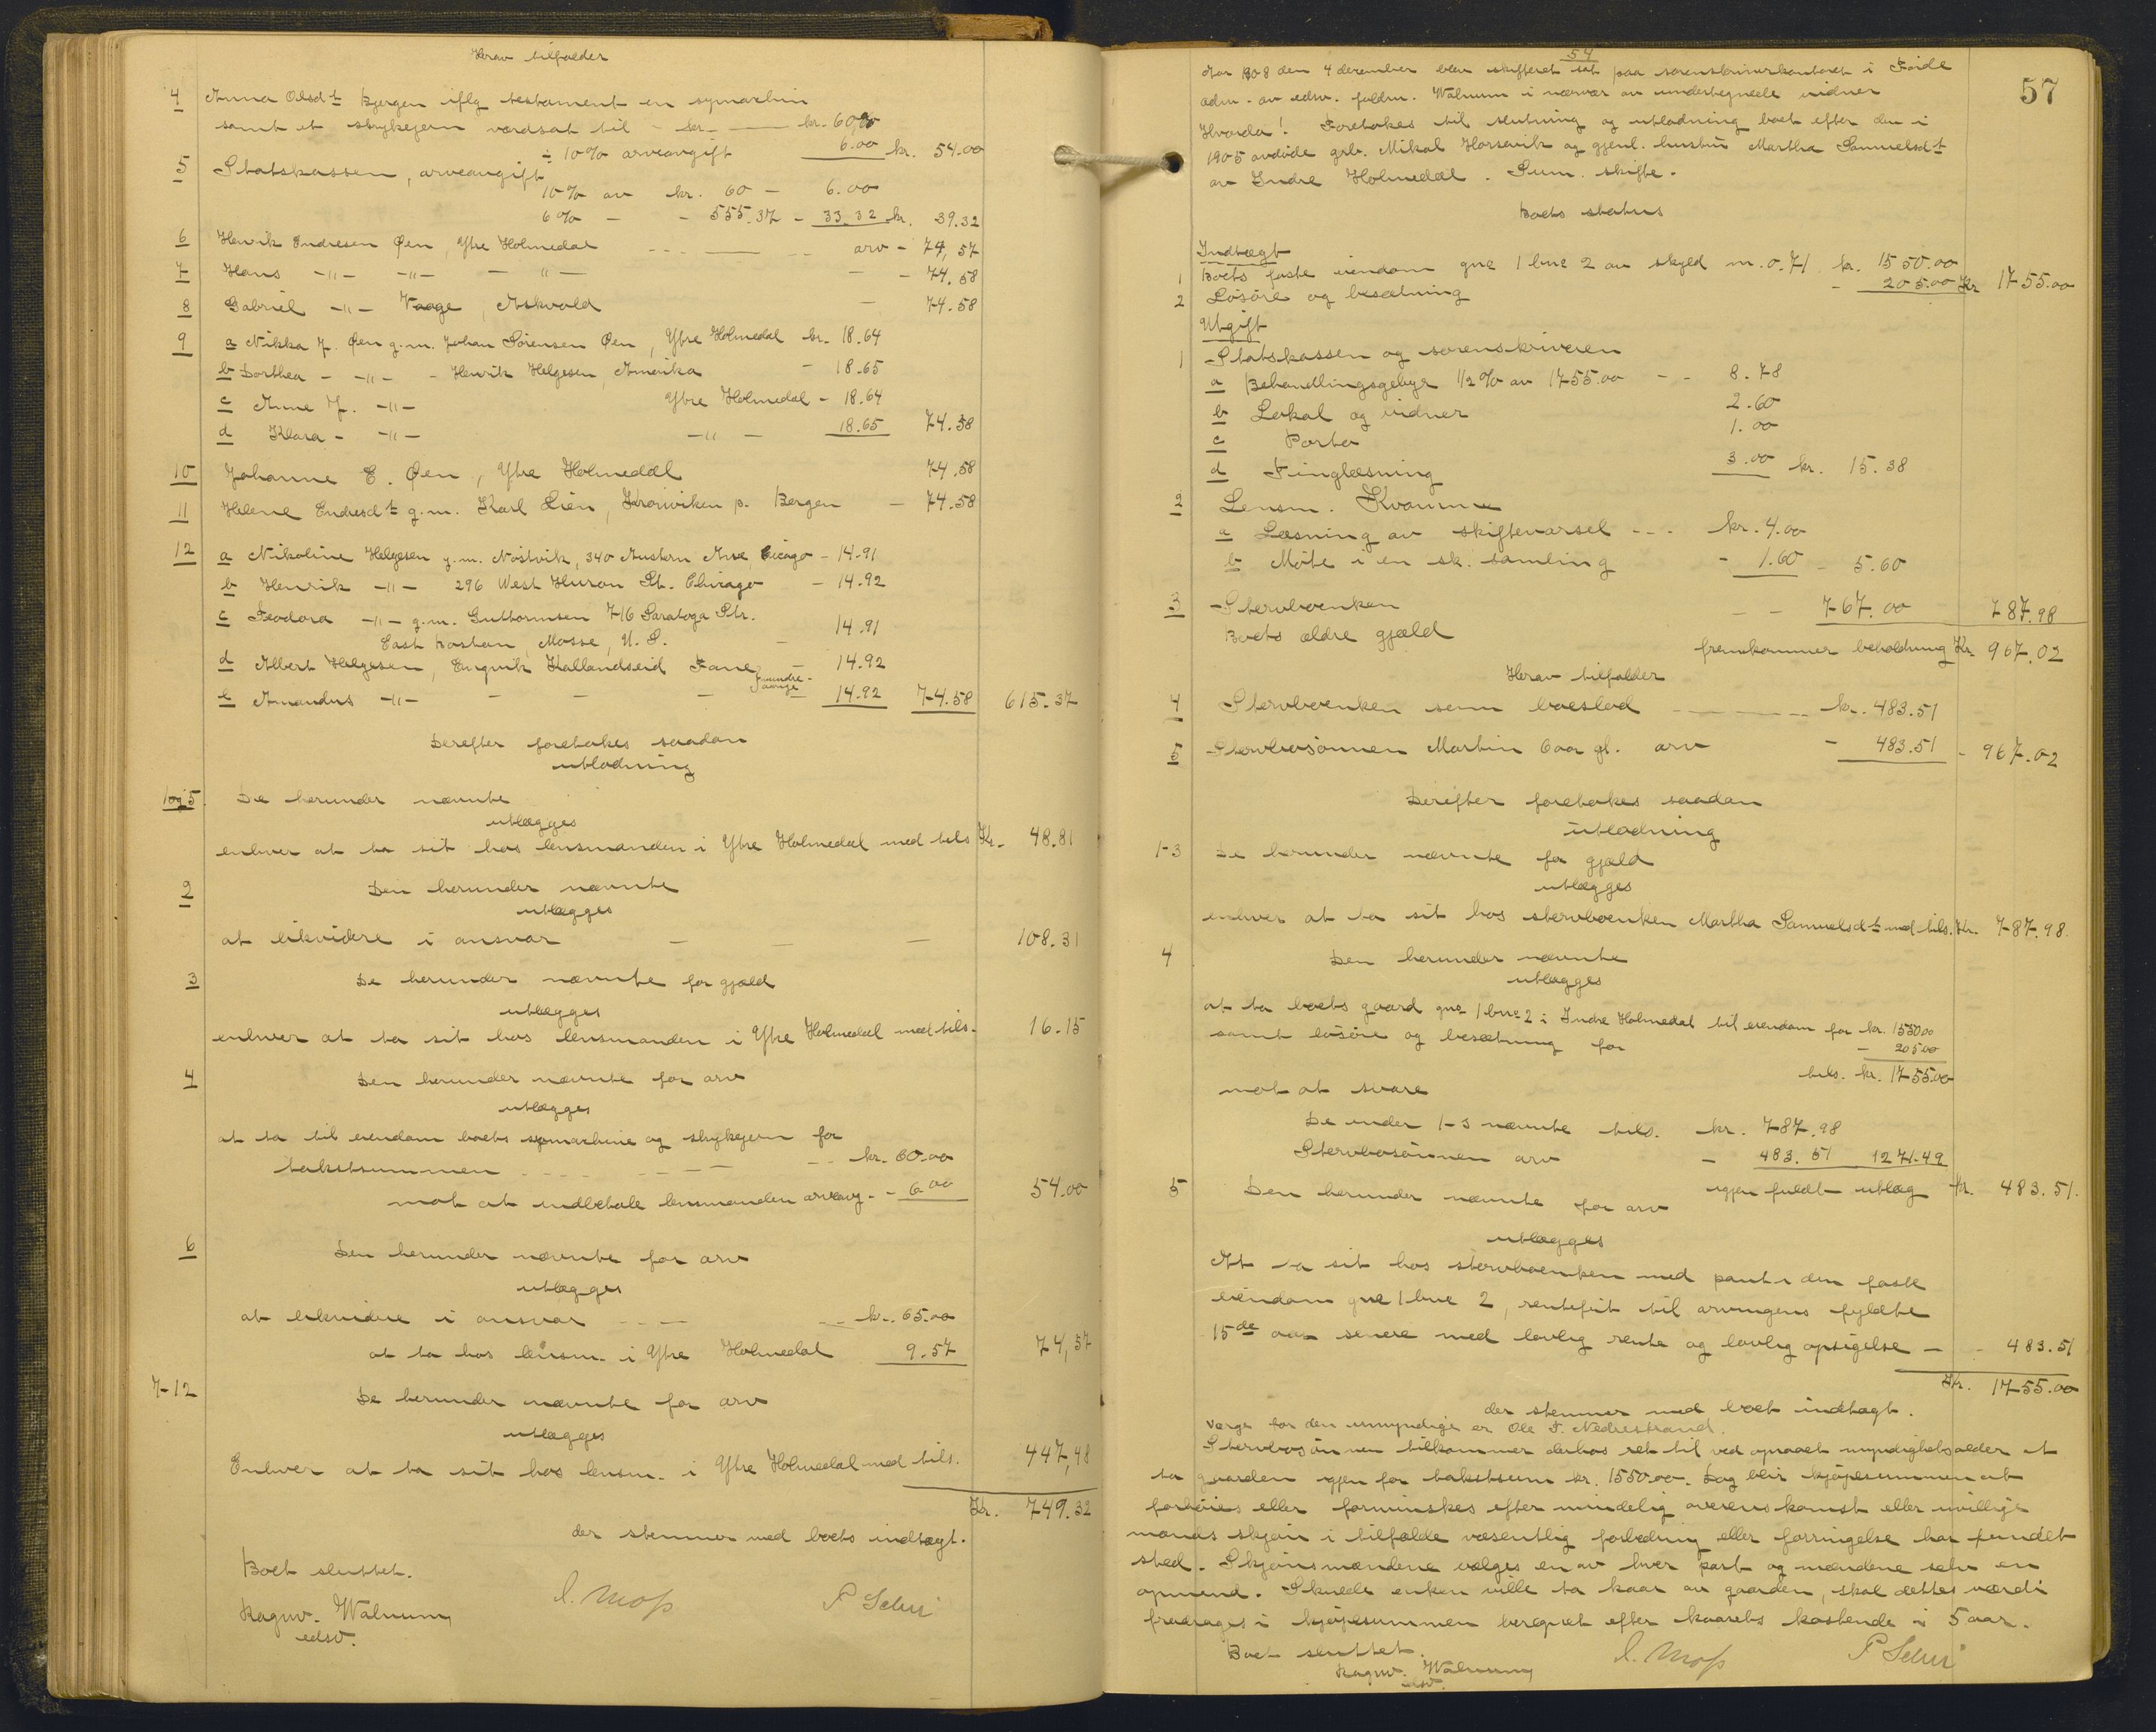 Herav tilfalder
4 Anna Olsdt Bjergen iflg testament en symaskin
samt et strykejern værdsat til - kr. 60,00
÷ 10% arveavgift 6.00 kr. 54.00
5 Statskassen, arveavgift
10% av kr. 60 - 6.00
6% - - 555.37 - 33.32 kr. 39.32
6 Henrik Endresen Øen, Ytre Holmedal arv - 74,57
7 Hans -"- -"- - "- - - 74.58
8 Gabriel -"- Vaage, Askvold - 74.58
9 a Nikka J. Øen g.m. Johan Sørensen Øen, Ytre Holmedal kr. 18.64
b Dorthea - -"- - Henrik Helgesen, Amerika - 18.65
c Anne J. -"- Ytre Holmedal - 18.64
d Klara - -"- -"- 18.65 74.58
10 Johanne E. Øen, Ytre Holmedal 74.58
11 Helene Endresdt g.m. Karl Lien, Kronviken p. Bergen - 74.58
12 a Nikoline Helgesen g.m. Nøstvik, 340 Austern Ave Cicago - 14.91
b Henrik -"- 296 West Huron St. Chicago - 14.92
c Teodora -"- g.m. Guttormsen 716 Saratoga Str.
East Boston, Masse, U.S. - 14.91
d Albert Helgesen, Engvik Kallandseid Fane - 14.92
e Amandus -"- - - - 14.92 74.58 615.37
Derefter foretakes saadan
utlodning
1og5. De herunder nævnte
utlægges
enhver at ta sit hos lensmanden i Ytre Holmedal med tils Kr. 48.81
2 Den herunder nævnte
utlægges
at likvidere i ansvar - - - 108.31
3 De herunder nævnte for gjæld
utlægges
enhver at ta sit hos lensmanden i Ytre Holmedal med tils. 16.15
4 Den herunder nævnte for arv
utlægges
at ta til eiendom boets symaskine og strykejern for
takstsummen - - - kr. 60.00
mot at indbetale lensmanden arveavg. - 6.00 54.00
6 Den herunder nævnte for arv
utlægges
at likvidere i ansvar - - - kr. 65.00
at ta hos lensm. i Ytre Holmedal 9.57 74,57
7-12 De herunder nævnte for arv
utlægges
Enhver at ta sit hos lensm. i Ytre Holmedal med tils. 447,48
Kr. 749.32
der stemmer med boets indtægt.
Boet sluttet.
Ragnv. Walnum
edsv.
54
57
Aar 1908 den 4 december blev skifteret sat paa sorenskriverkontoret i Førde
adm. av edsv. fuldm. Walnum i nærvær av undertegnede vidner
Hvorda! Foretakes til slutning og utlodning boet efter den i
1905 avdøde grb. Mikal Horsevik og gjenl. hustru Martha Samuelsdt
av Indre Holmedal. Sum. skifte.
Boets status
Indtægt
1 Boets faste eiendom gne 1 bne 2 av skyld m. 0.71 kr. 1550.00
2 Løsøre og besætning - 205.00 Kr 1755.00
Utgift
1 Statskassen og sorenskriveren
a Behandlingsgebyr 1/2 % av 1755.00 - - 8.78
b Lokal og vidner 2.60
c Porto 1.00
d Tinglæsning 3.00 kr. 15.38
2 Lensm. Kvamme
a Læsning av skiftevarsel - - - kr. 4.00
b Møte i en sk. samling - 1.60 - 5.60
3 Stervboenken
Boets ældre gjæld - - 767.00 787.98
fremkommer beholdning Kr. 967.02
Herav tilfalder
4 Stervboenken senm boeslod - kr. 483.51
5 Stervbosønnen Martin 6 aar gl. arv - 483.51 - 967.02
Derefter foretakes saadan
utlodning
1-3 De herunder nævnte for gjæld
utlægges
enhver at ta sit hos stervboenken Martha Samuelsdt med tils. Kr. 787.98
4 Den herunder nævnte
utlægges
at ta boets gaard gne 1 bne 2 i Indre Holmedal til eiendom for kr. 1550.00
samt løsøre og besætning for - 205.00
tils. kr. 1755.00
mot at svare
De under 1-3 nævnte tils. kr. 787.98
Stervbosønnen arv - 483.51 1271.49
igjen fuldt utlæg kr. 483.51.
5 Den herunder nævnte for arv
utlægges
At ta sit hos stervboenken med pant i den faste
eiendom gne 1 bne 2, rentefrit til arvingens fyldte
15de aar senere med lovlig rente og lovlig opsigelse - - 483.51
Kr. 1755.00
der stemmer med boet indtægt.
Værge for den umyndige er Ole T. Nedrestrand.
Stervbosønnen tilkommer derhos ret til ved opnaaet myndighetsalder at
ta gaarden igjen for takstsum kr. 1550.00. Dog blir kjøpesummen at
forhøies eller forminskes efter mindelig overenskomst eller uvillige
mænds skjøn i tilfælde væsentlig forbedring eller forringelse har fundet
sted. Skjønsmændene vælges en av hver part og mændene selv en
opmand. Skulde enken ville ta kaar av gaarden, skal dettes værdi
fradrages i kjøpesummen beregnet efter kaarets kostende i 5 aar.
Boet sluttet.
Ragnv. Walnum
edsv.